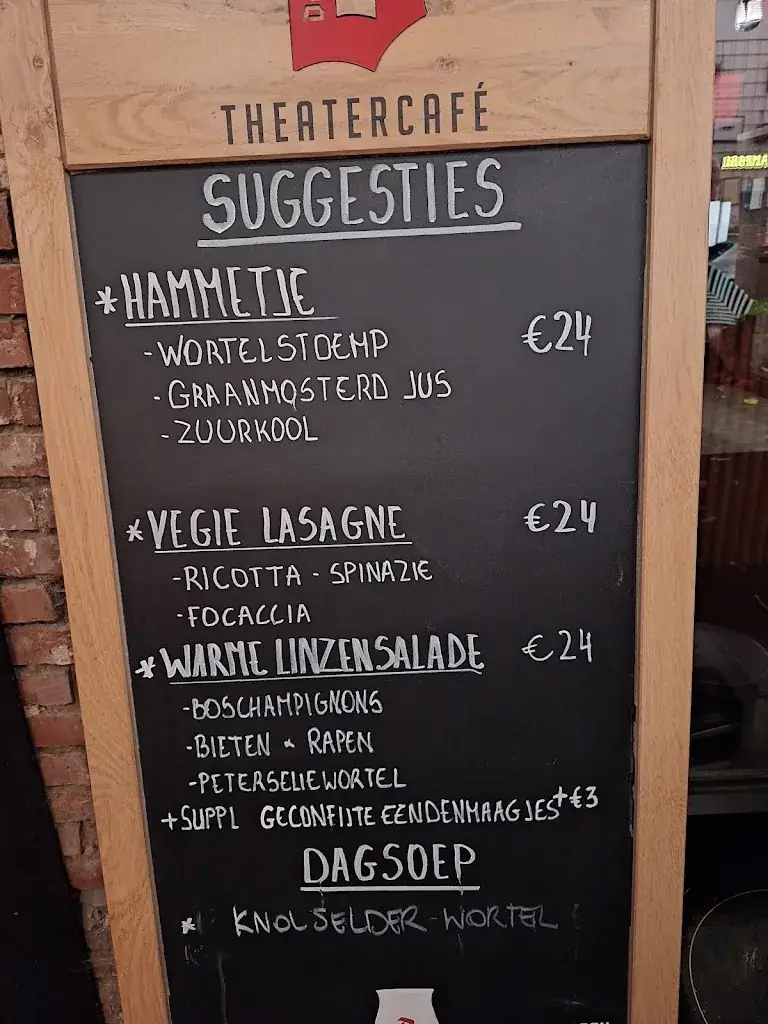 THEATERCAFÉ
SUGGESTIES
*HAMMETJE
-WORTELSTOEMP €24
-GRAANMOSTERD JUS
-ZUURKOOL
*VEGIE LASAGNE €24
-RICOTTA - SPINAZIE
-FOCACCIA
*WARME LINZENSALADE €24
-BOSCHAMPIGNONS
-BIETEN & RAPEN
-PETERSELIEWORTEL
+SUPPL GECONFIJTE EENDENMAAGJES +€3
DAGSOEP
* KNOLSELDER-WORTEL